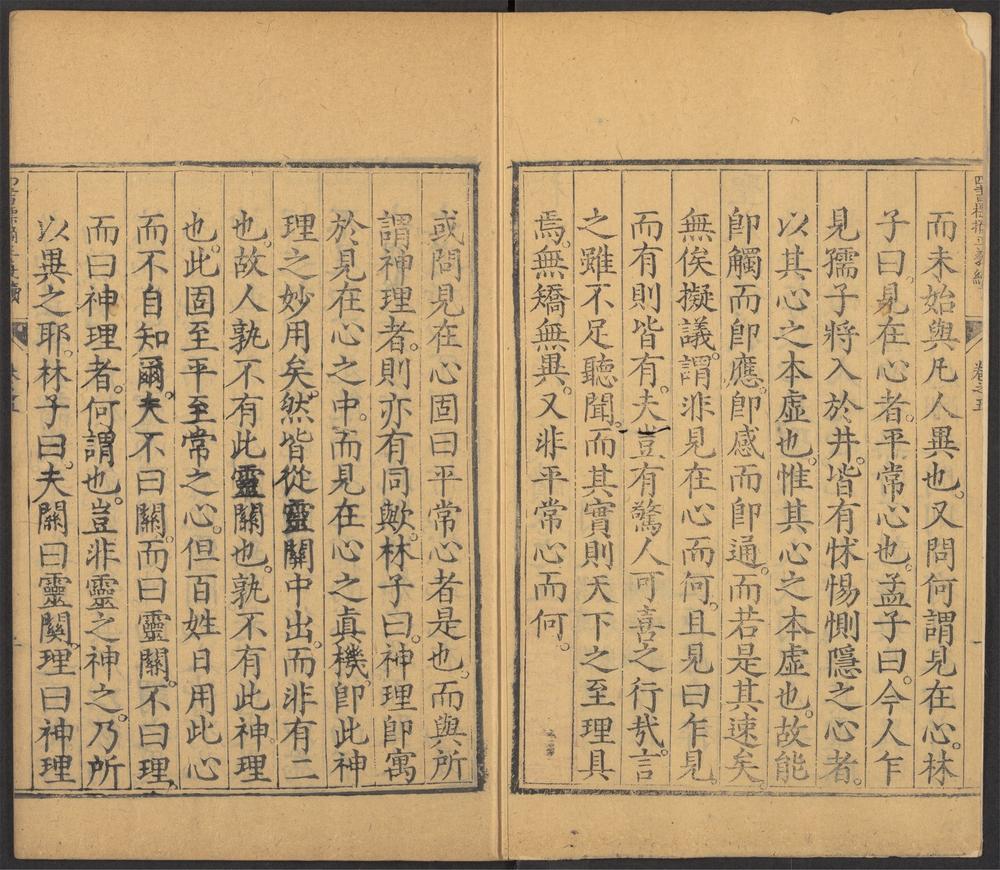 而未始與凡人異也。又問何謂見在心。林
子曰。見在心者。平常心也。孟子曰。今人乍
見孺子將入於井。皆有怵惕惻隱之心者。
以其心之本虛也。惟其心之本虛也。故能
卽觸而卽應。卽感而卽通。而若是其速矣。
無俟擬議。謂非見在心而何。且見曰乍見。
而有則皆有。夫豈有驚人可喜之行哉。言
之雖不足聽聞。而其實則天下之至理具
焉。無矯無異。又非平常心而何。
或問見在心固曰平常心者是也。而與所
謂神理者。則亦有同歟。林子曰。神理卽寓
於見在心之中。而見在心之眞機。卽此神
理之妙用矣。然皆從靈關中出。而非有二
也。故人孰不有此靈關也。孰不有此神理
也。此固至平至常之心。但百姓日用此心
而不自知爾。夫不曰關。而曰靈關。不曰理。
而曰神理者。何謂也。豈非靈之神之。乃所
以異之耶。林子曰。夫關曰靈關。理曰神理
卷之五